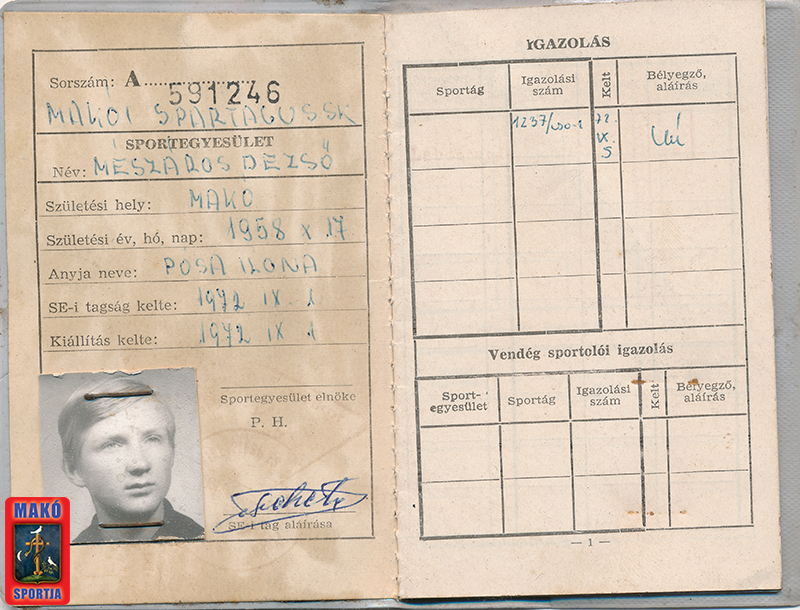 Sorszám: A 591246
MAKÓI SPARTACUS SK
SPORTEGYESÜLET
Név: MÉSZÁROS DEZSŐ
Születési hely: MAKO
Születési év, hó, nap: 1958 X 17
Anyja neve: POSA ILONA
SE-i tagság kelte: 1972 IX. 1
Kiállítás kelte: 1972 IX 1
Sportegyesület elnöke
P. H.
SE-i tag aláírása
MAKÓ
SPORTJA
IGAZOLÁS
Sportág
Igazolási
szám
Kelt
Bélyegző,
aláírás
72
Vendég sportolói igazolás
Sport-
egyesület
Sportág
Igazolási
szám
Kelt
Bélyegző,
aláírás
— 1 —